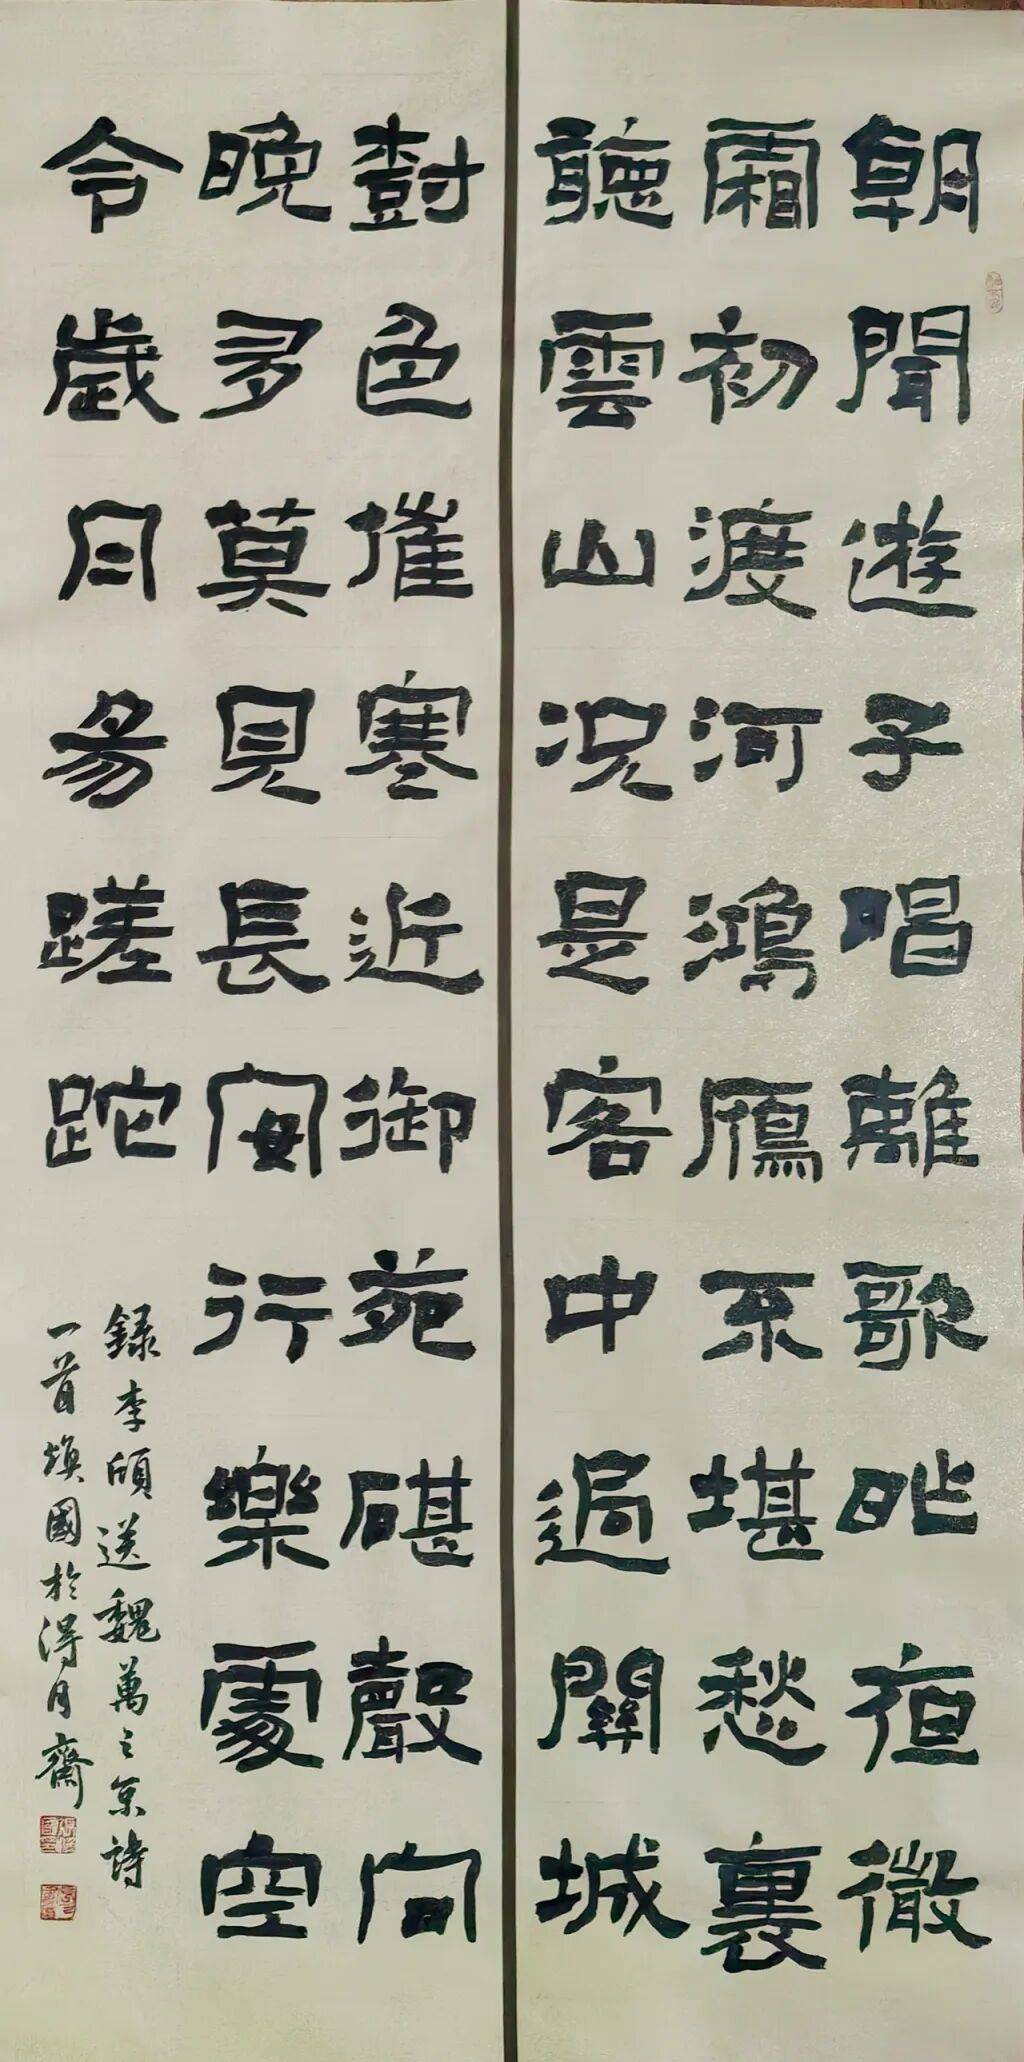 朝聞遊子唱離歌昨夜微
霜初渡河鴻鴈不堪愁裏
聽雲山况是客中過關城
樹色催寒近御苑碪聲向
晚多莫見長安行樂處空
令歲月易蹉跎
錄李頎送魏萬之京詩
一首煥國於得月齋